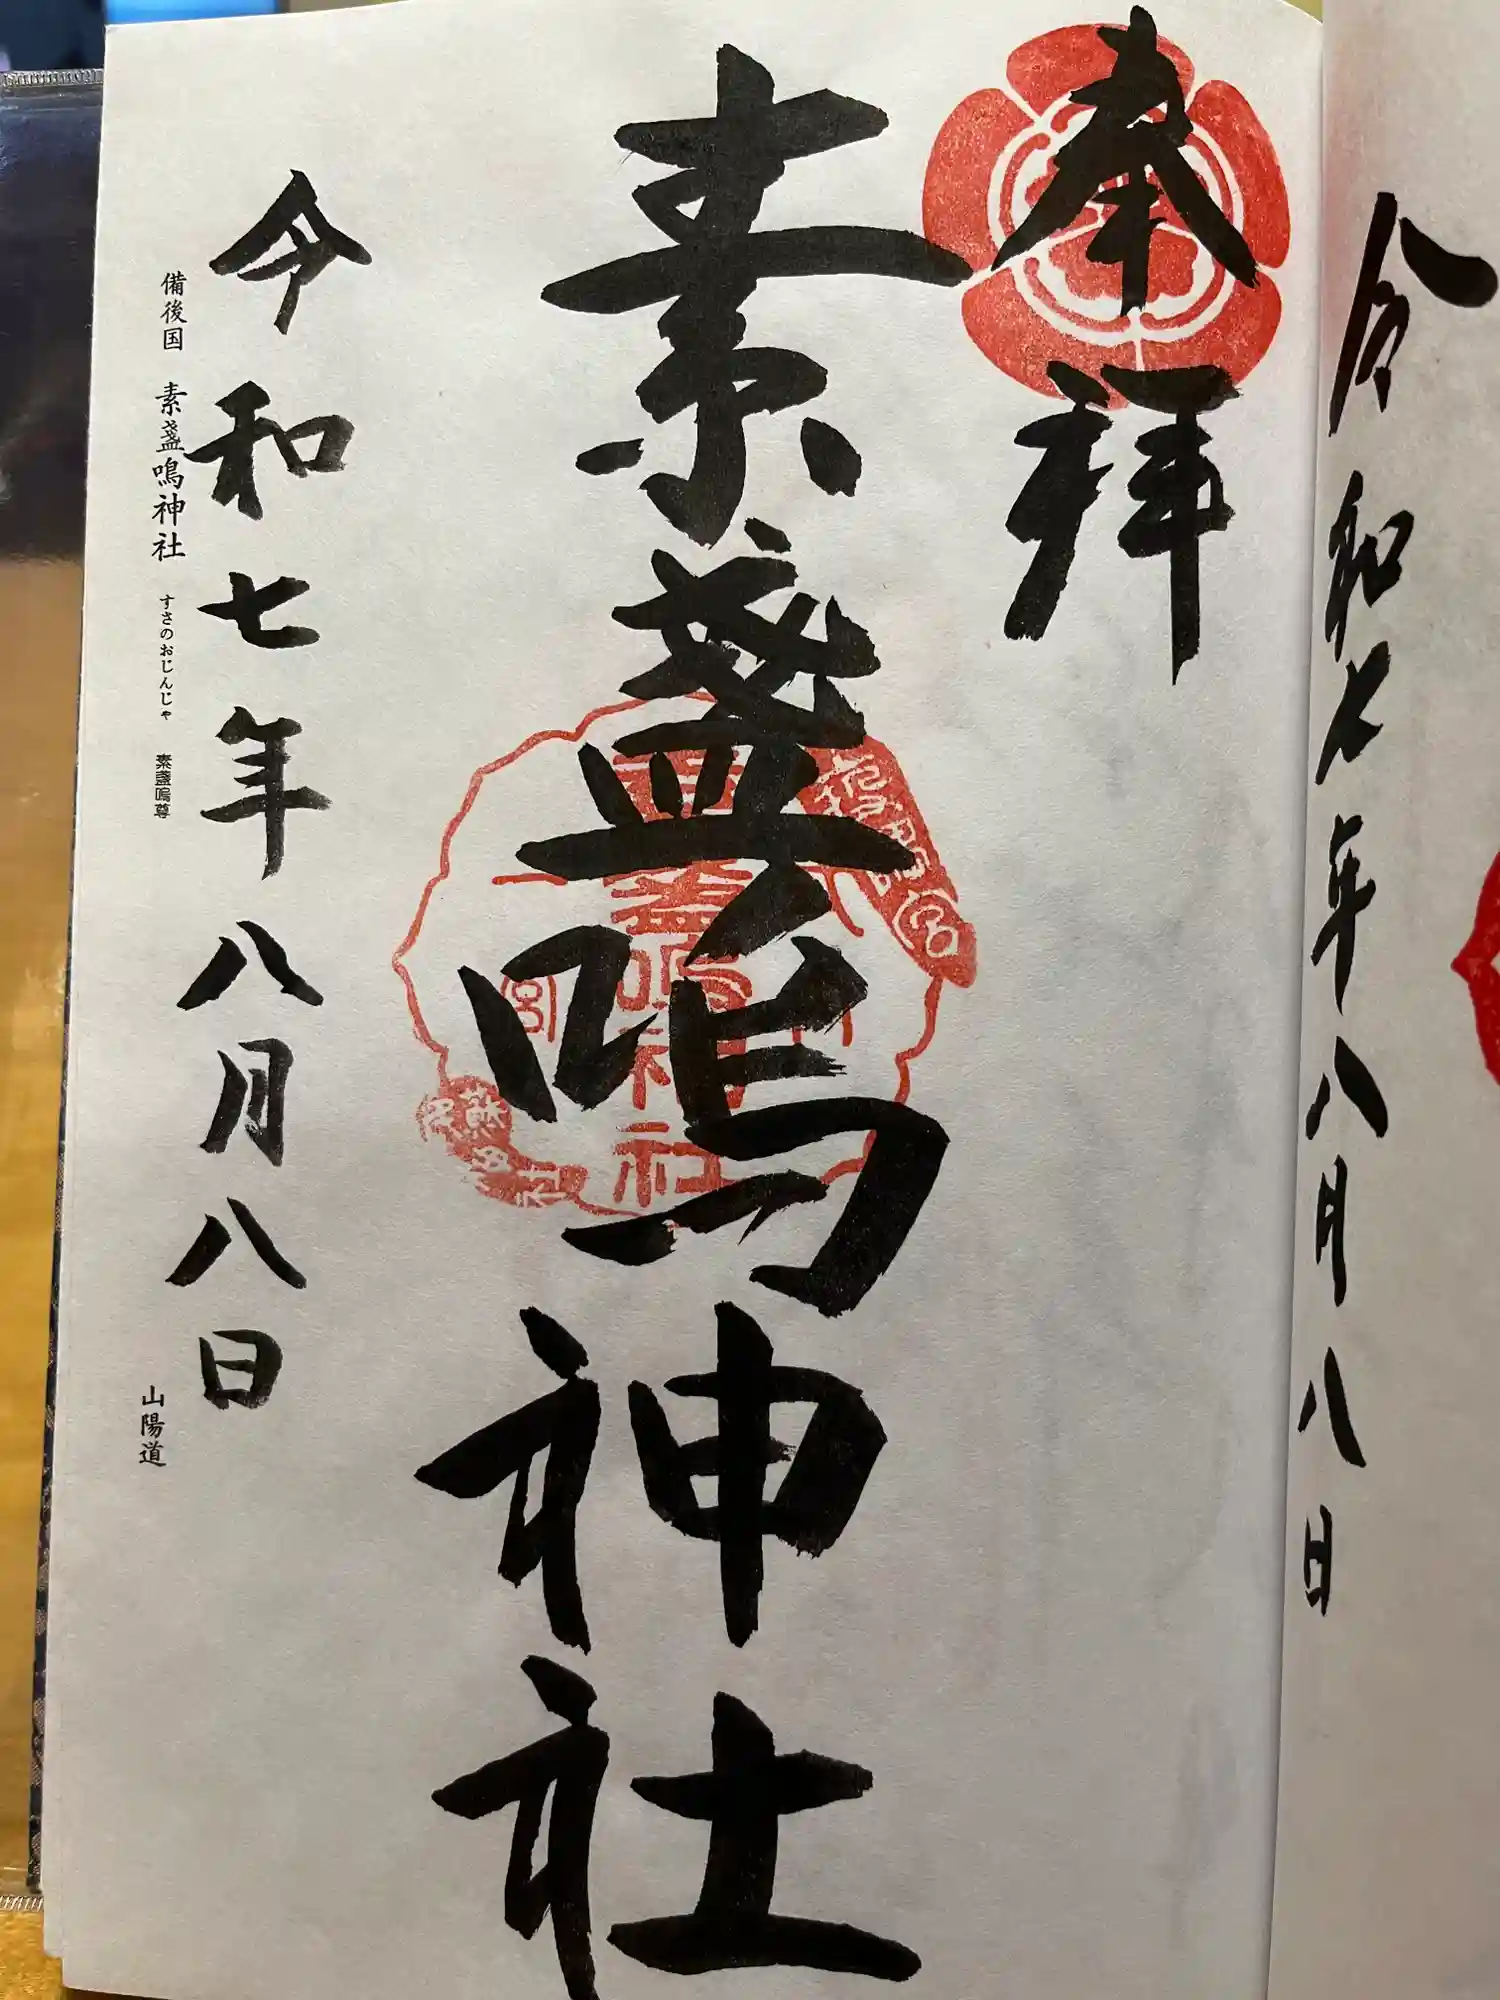 令和七年八月八日
奉拝
素盞嗚神社
令和七年八月八日
備後国 素盞嗚神社 すさのおじんじゃ 素盞嗚尊
山陽道